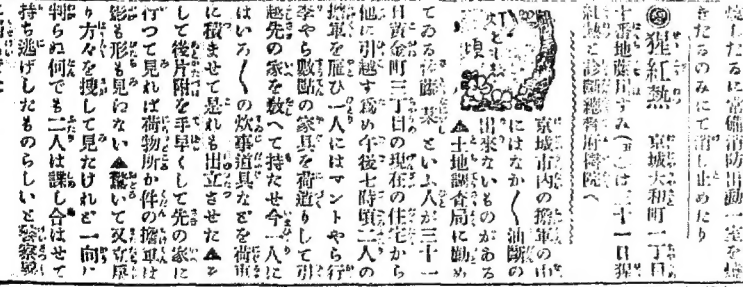 焼したるに常備消防出動一室を焼
きたるのみにて消し止めたり
猩紅熱 京城大和町一丁目
十番地藤川すみ(
は三十一日猩
紅熱と診断総督府医院へ
京城市内の擔軍の中
にはなか〱油断の
出來ないものがある
▲土地調査局に勤め
てゐる 藤某といふ人が三十一
日黄金町三丁目の現在の住宅から
他に引越す為め午後七時頃二人の
擔軍を雇ひ一人にはマントやら行
李やら數點の家具を荷造りして引
越先の家を教へて持たせ今一人に
はいろ〱の炊事道具などを荷車
に積ませて是れも出立させた▲と
して後片附を手早くして先の家に
行つて見れば荷物所か件の擔軍は
影も形も見わない▲驚いて又立戻
り方々を捜して見たけれど一向に
判らぬ何でも二人は諜し合はせて
持ち逃げしたものらしいと警察